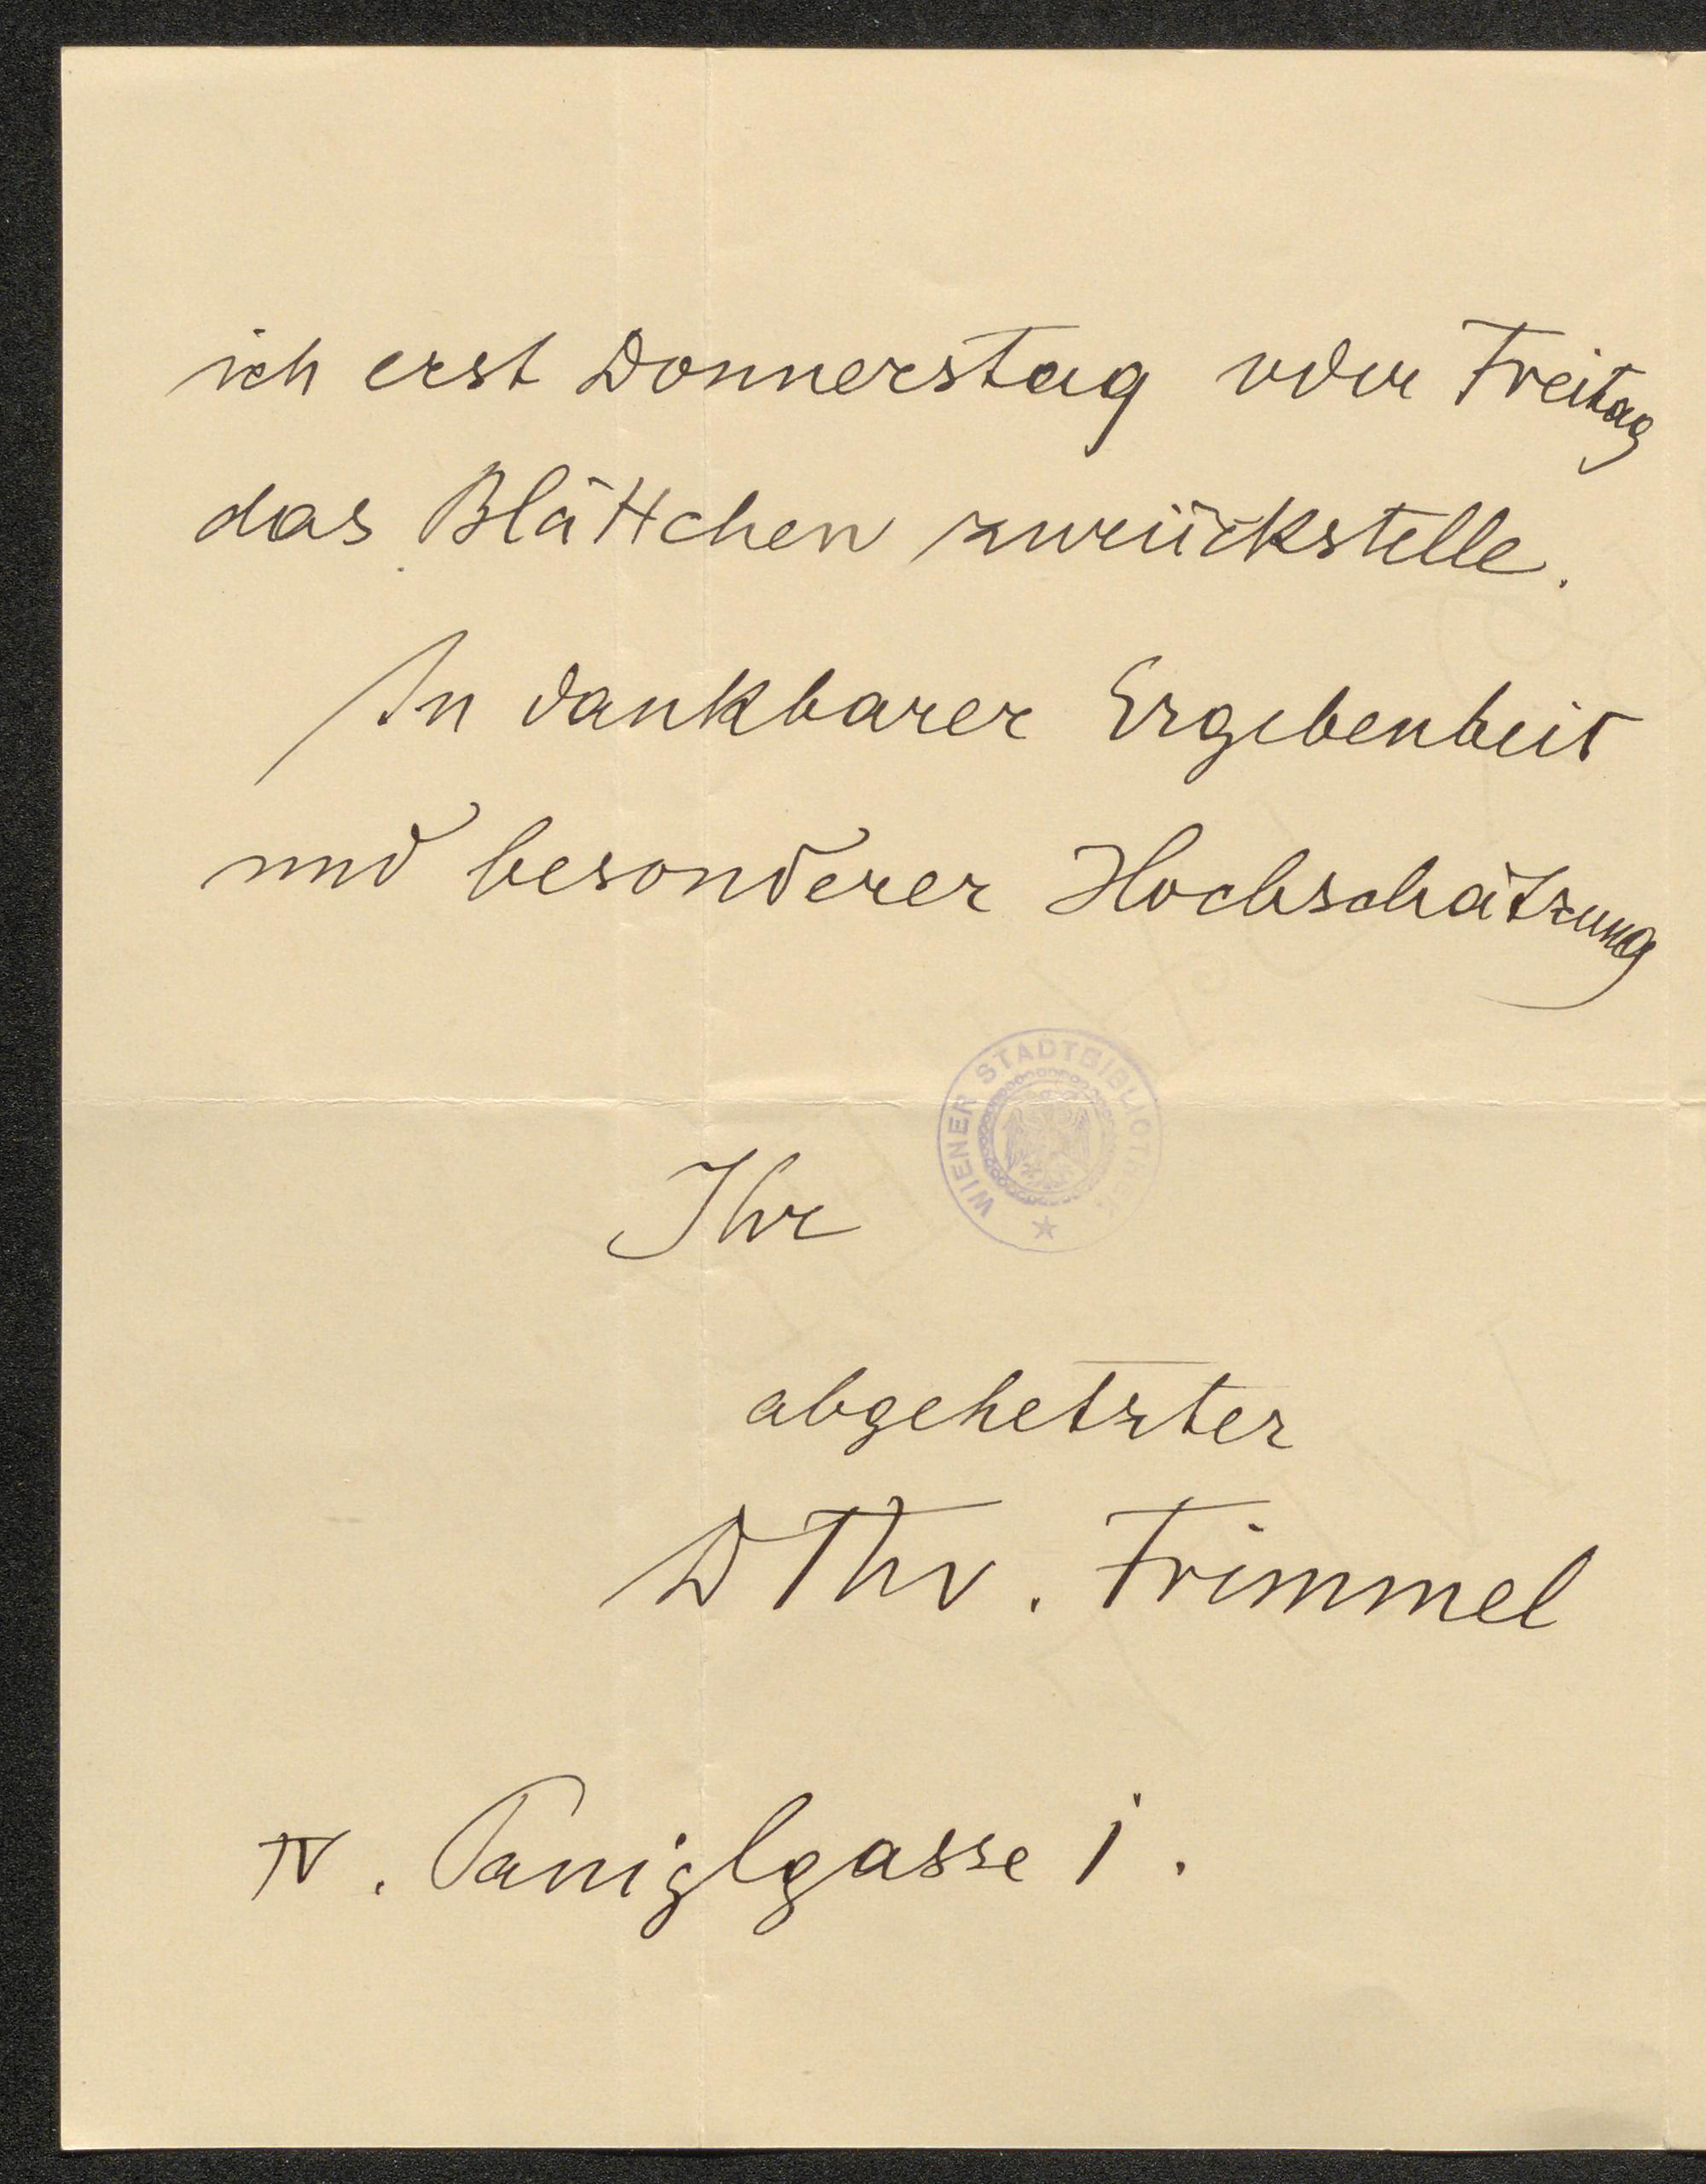 ich erst Donnerstag oder Freitag
das Blättchen zurückstelle.
In dankbarer Ergebenheit
und besonderer Hochschätzung
WIENER STADTBIBLIOTHEK
Ihr
abgehetzter
D Thv. Frimmel
IV. Paniglgasse 1.